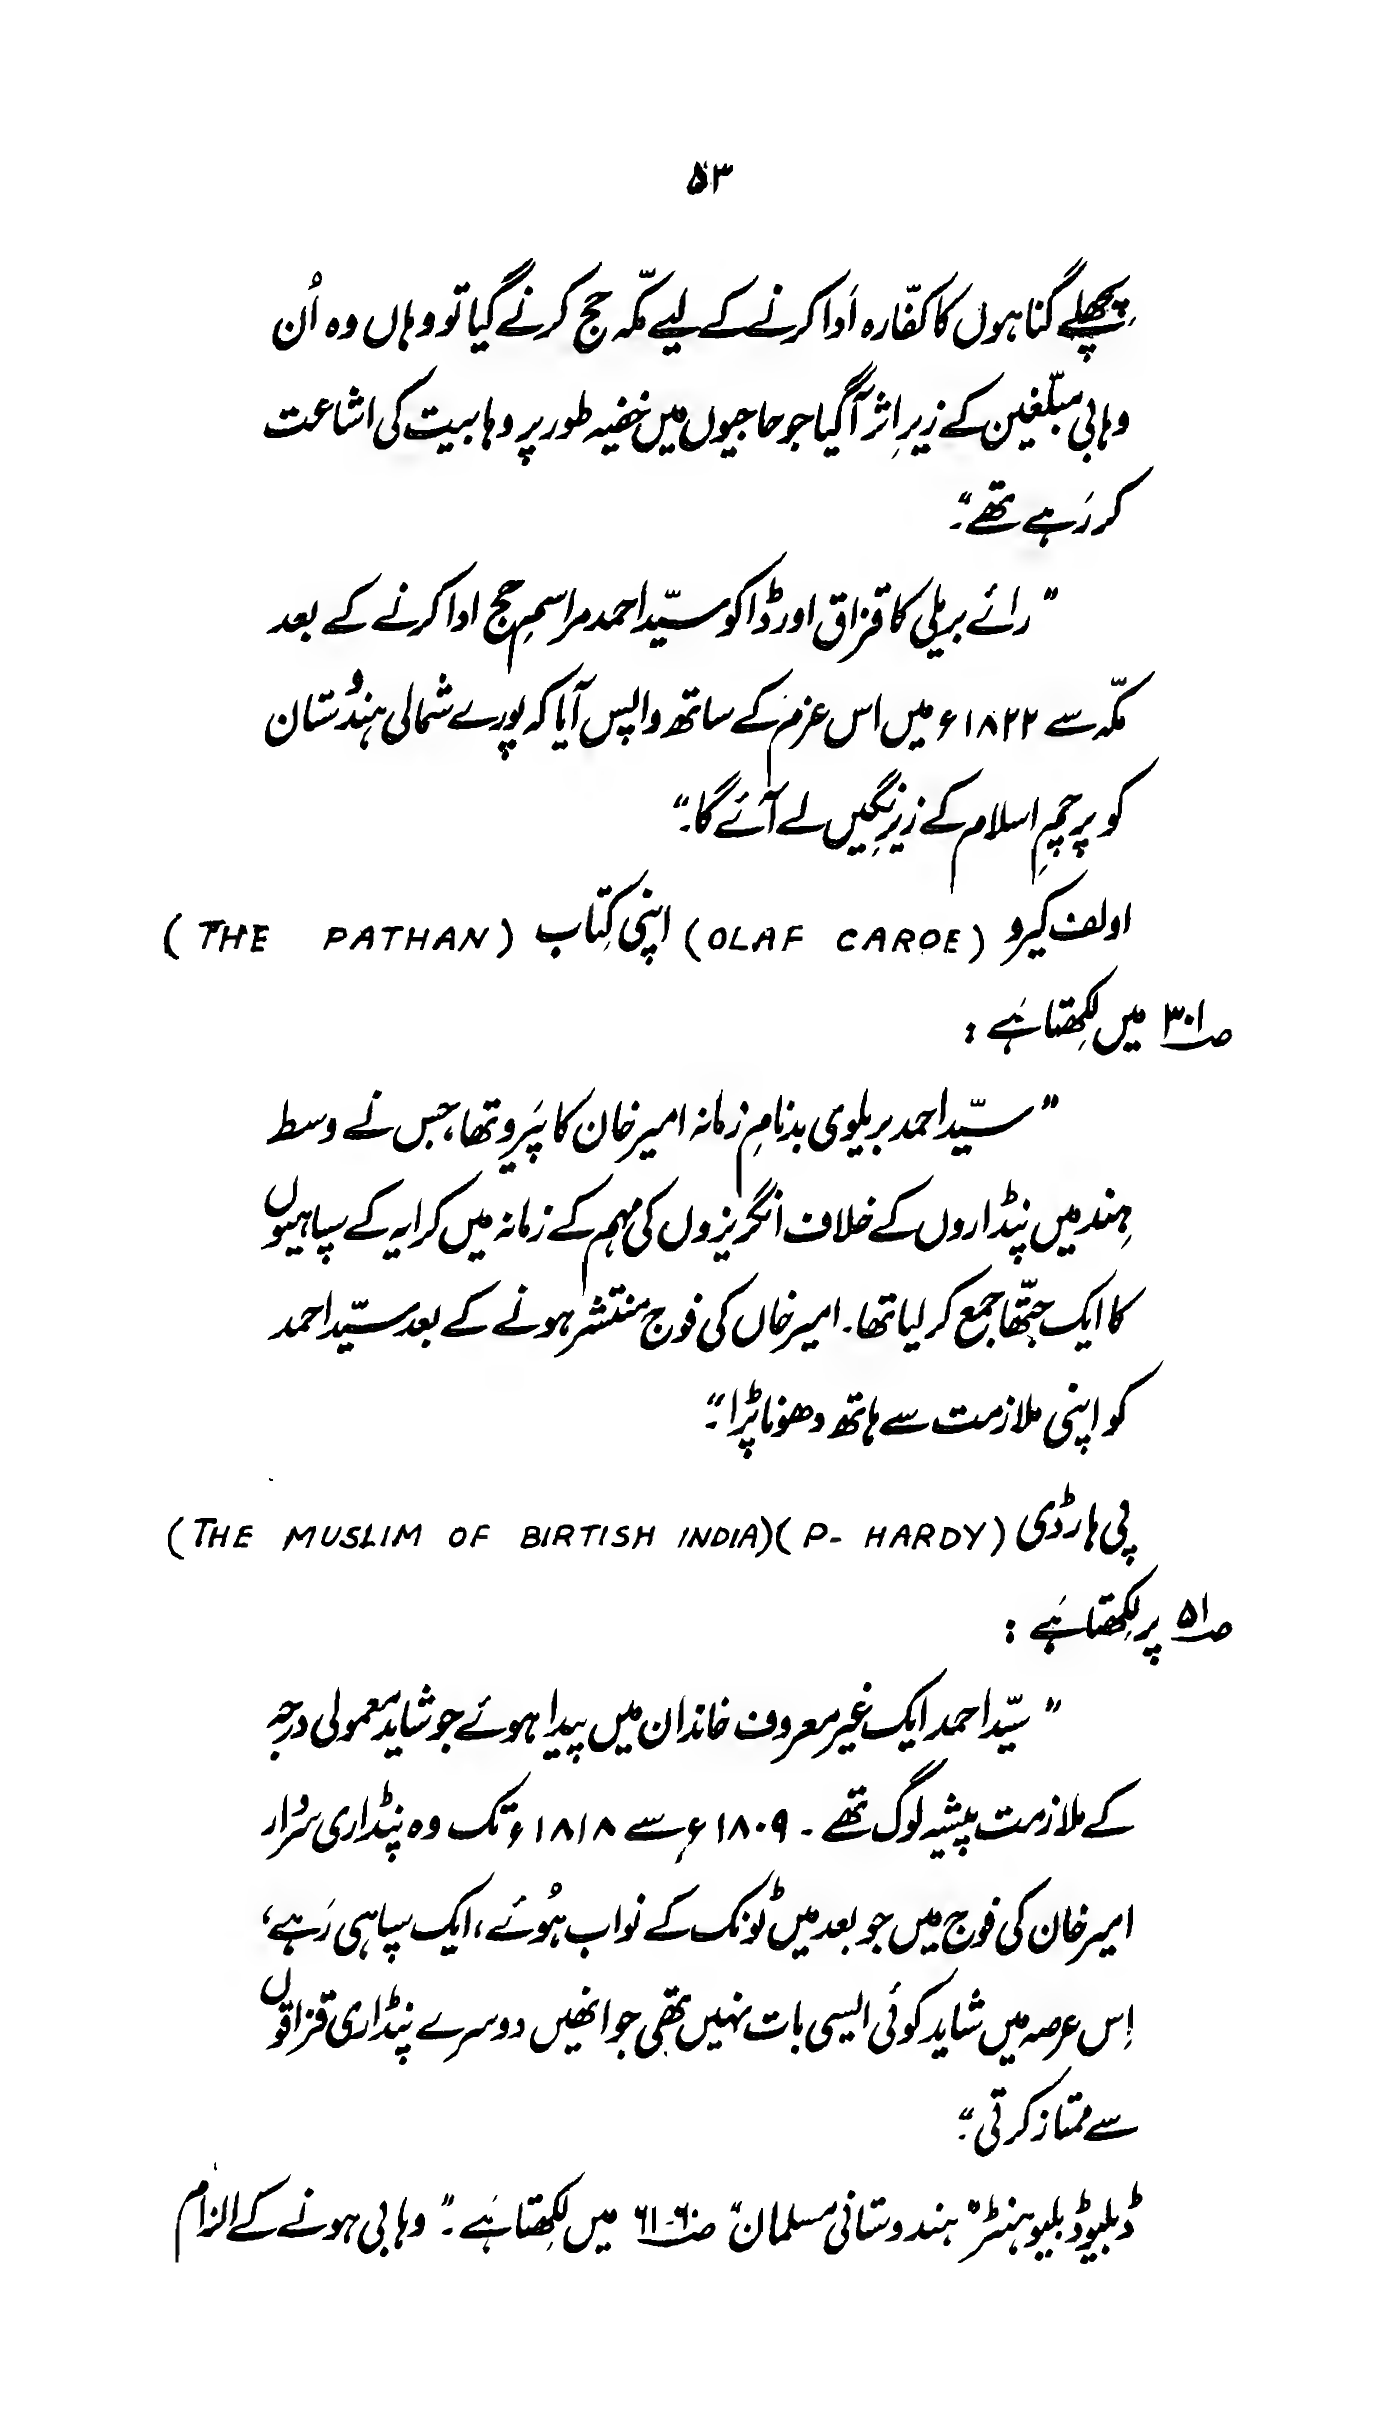 ۵۳
پِچھلے گناہوں کا کفّارہ اَدا کرنے کے لیے مکّہ حج کرنے گیا تو وہاں وہ اُن
وہابی مبلّغین کے زیرِ اثر آگیا جو حاجیوں میں خفیہ طور پر وہابیت کی اشاعت
کر رَہے تھے“۔
”رائے بریلی کا قزاق اور ڈاکو سیّد احمد مراسمِ حج ادا کرنے کے بعد
مکّہ سے ۱۸۲۲ء میں اس عزم کے ساتھ واپس آیا کہ پورے شمالی ہندُوستان
کو پرچمِ اسلام کے زیرِ نگیں لے آئے گا۔“
اولف کیرو (OLAF CAROE) اپنی کِتاب (THE PATHAN)
صـ۳۰۱ میں لِکھتا ہَے :
”سیّد احمد بریلوی بدنامِ زمانہ امیر خان کا پَیرو تھا، جس نے وسط
ہِند میں پنڈاروں کے خلاف انگریزوں کی مہم کے زمانہ میں کرایہ کے سپاہیوں
کا ایک جتّھا جمع کر لیا تھا۔ امیر خاں کی فوج منتشر ہونے کے بعد سیّد احمد
کو اپنی ملازمت سے ہاتھ دھونا پڑا“۔
پی ہارڈی (P- HARDY) (THE MUSLIM OF BIRTISH INDIA)
صـ۵۱ پر لِکھتا ہَے :
”سیّد احمد ایک غیر معروف خاندان میں پیدا ہوئے جو شاید معمولی درجہ
کے ملازمت پیشہ لوگ تھے ۔ ۱۸۰۹ء سے ۱۸۱۸ء تک وہ پنڈاری سردار
امیر خان کی فوج میں جو بعد میں ٹونک کے نواب ہُوئے، ایک سپاہی رَہے،
اِس عرصہ میں شاید کوئی ایسی بات نہیں تھی جو انھیں دوسرے پنڈاری قزاقوں
سے ممتاز کرتی“۔
ڈبلیو ڈبلیو ہنٹر ”ہندوستانی مسلمان“ صـ۶۰-۶۱ میں لِکھتا ہَے ۔ ”وہابی ہونے کے الزام